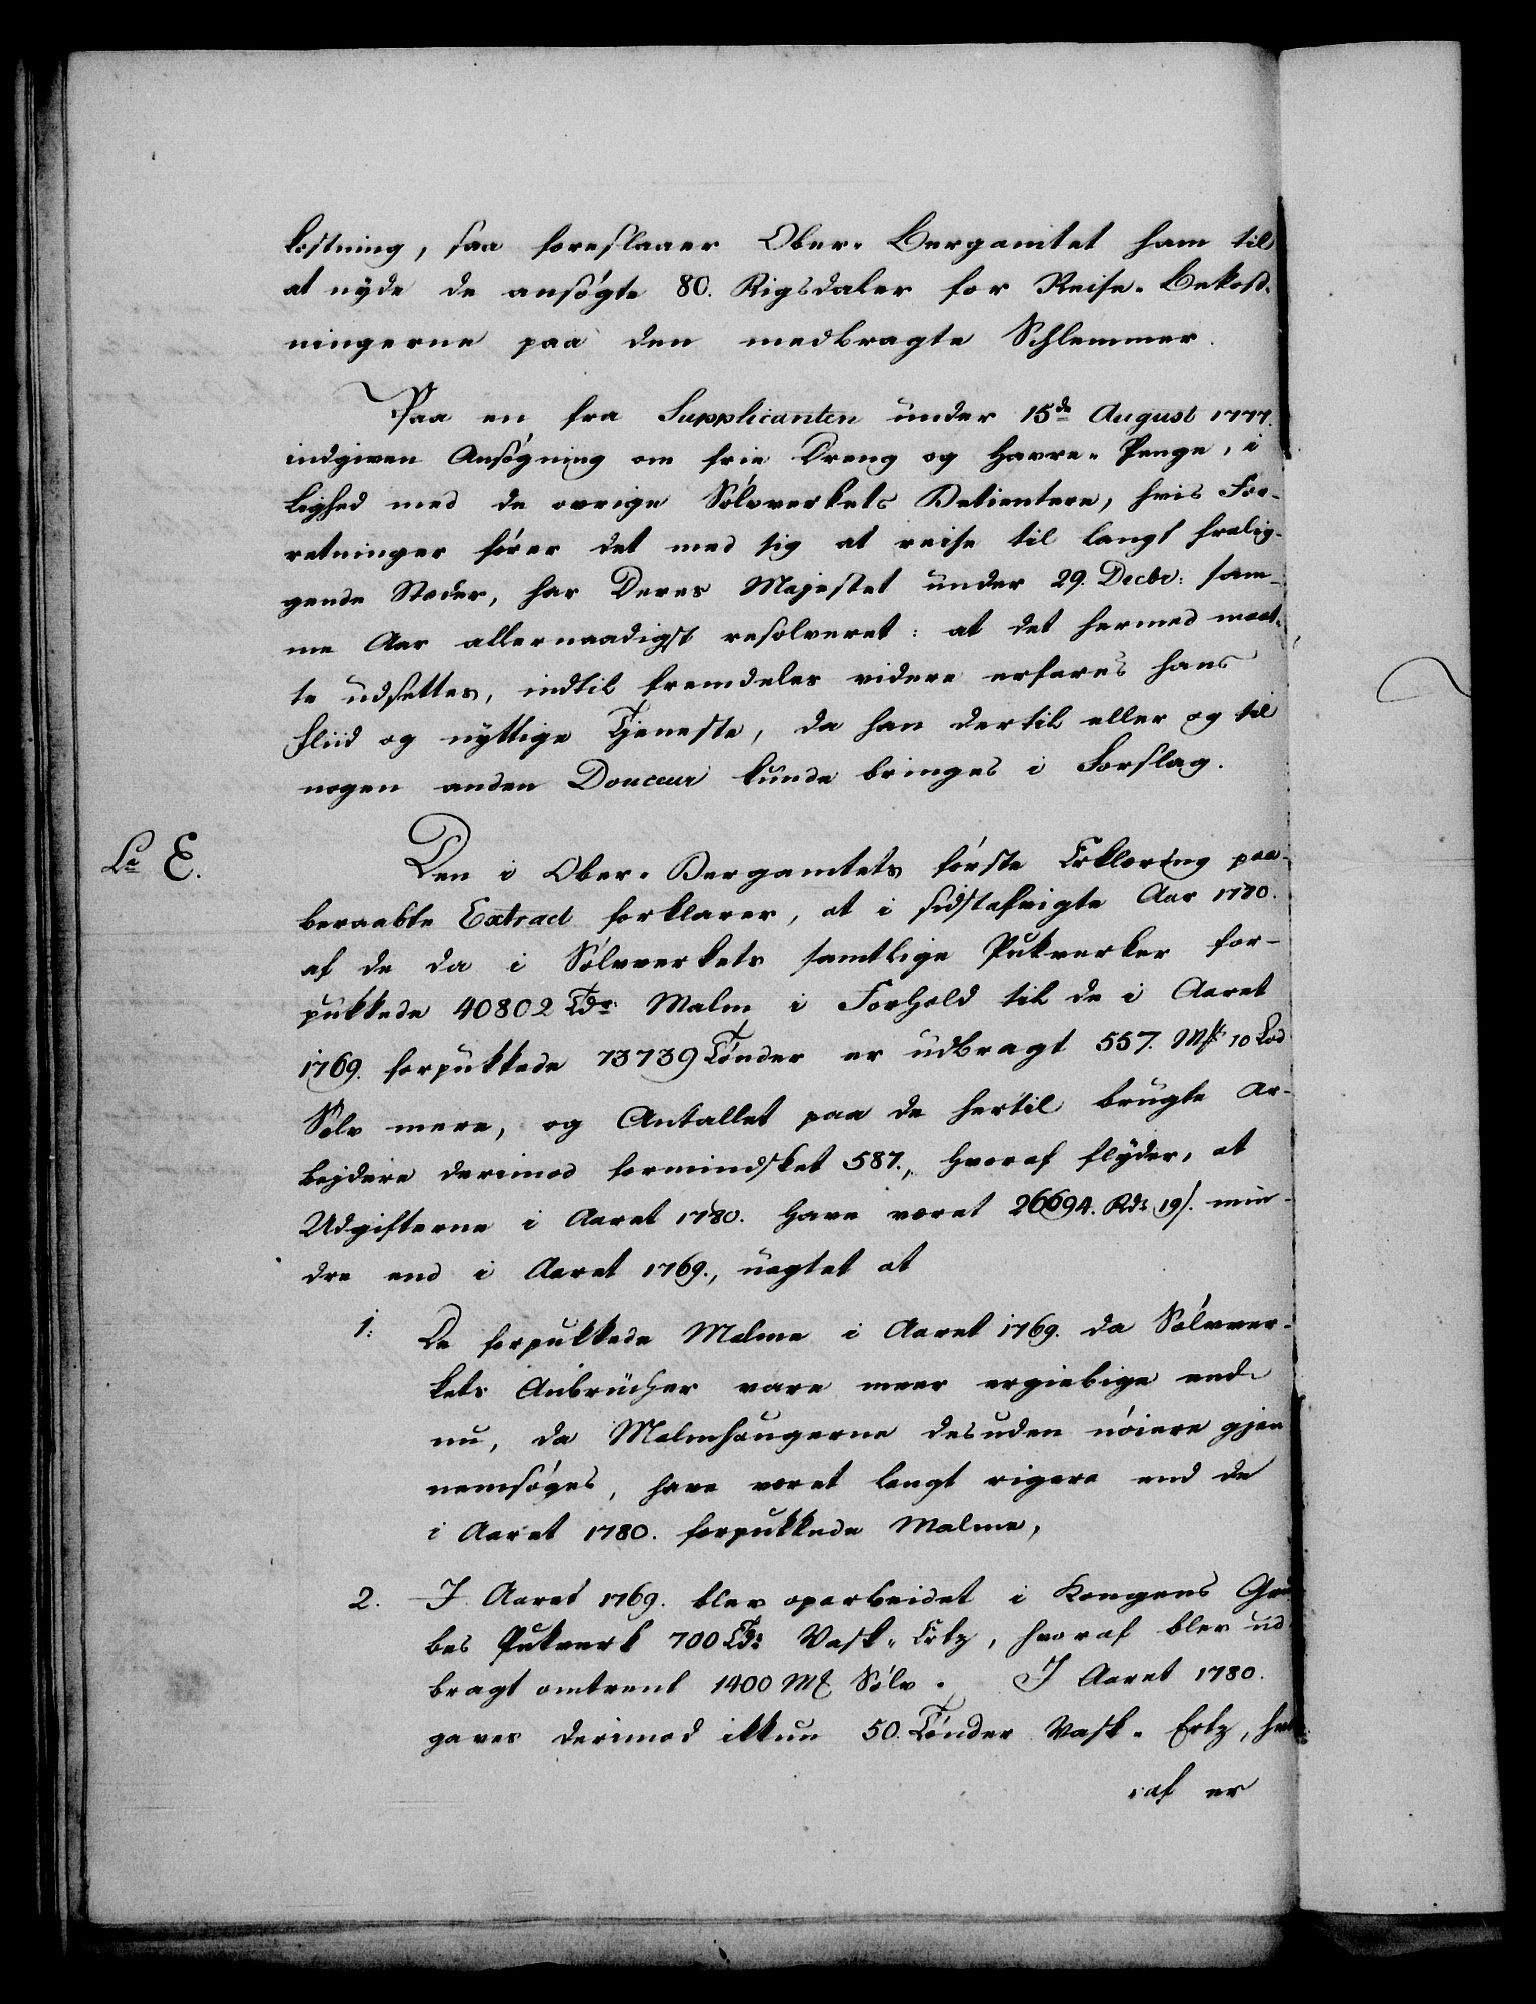 kostning, saa foreslaaer Ober-Bergamtet ham til
at nyde de ansøgte 80. Rigsdaler for Reise-Bekost-
ningerne paa den medbragte Schlemmer.
Paa en fra Supplicanten under 15de August 1777.
indgiven Ansøgning om frie Dreng og Havre-Penge, i
Lighed med de øvrige Sølvverkets Betientere, hvis For-
retninger fører det med sig at reise til langt fralig-
gende Stæder, har Deres Majestet under 29. Decbr: sam-
me Aar allernaadigst resolveret: at det hermed maat-
te udsettes, indtil fremdeles videre erfares hans
Fliid og nyttige Tjeneste, da han dertil eller og til
nogen anden Douceur kunde bringes i Forslag.
La E.
Den i Ober-Bergamtets første Erklæring paa-
beraabte Extract forklarer, at i sidstafvigte Aar 1780.
af de da i Sølvverkets samtlige Pukverker for-
pukkede 40802 Tdr: Malm i Forhold til de i Aaret
1769. forpukkede 73739 Tønder er udbragt 557. Mk 10 Lod
Sølv mere, og Antallet paa de hertil brugte Ar-
bejdere derimod formindsket 587., hvoraf flyder, at
Udgifterne i Aaret 1780. have været 26694. Rdr 19/. min-
dre end i Aaret 1769., uagtet at
1: De forpukkede Malme i Aaret 1769. da Sølvver-
kets Anbrücher vare meer ergiebige end
nu, da Malmhaugerne desuden nøiere gjen
nemsøges, have været langt rigere end de
i Aaret 1780. forpukkede Malme,
2. I Aaret 1769. blev oparbeidet i Kongens Gru
bes Pukverk 700 Tdr Vask-Ertz, hvoraf blev ud
bragt omtrent 1400 Mk Sølv. I Aaret 1780.
gaves derimod ikkun 50. Tønder Vask-Ertz, hvo
raf er